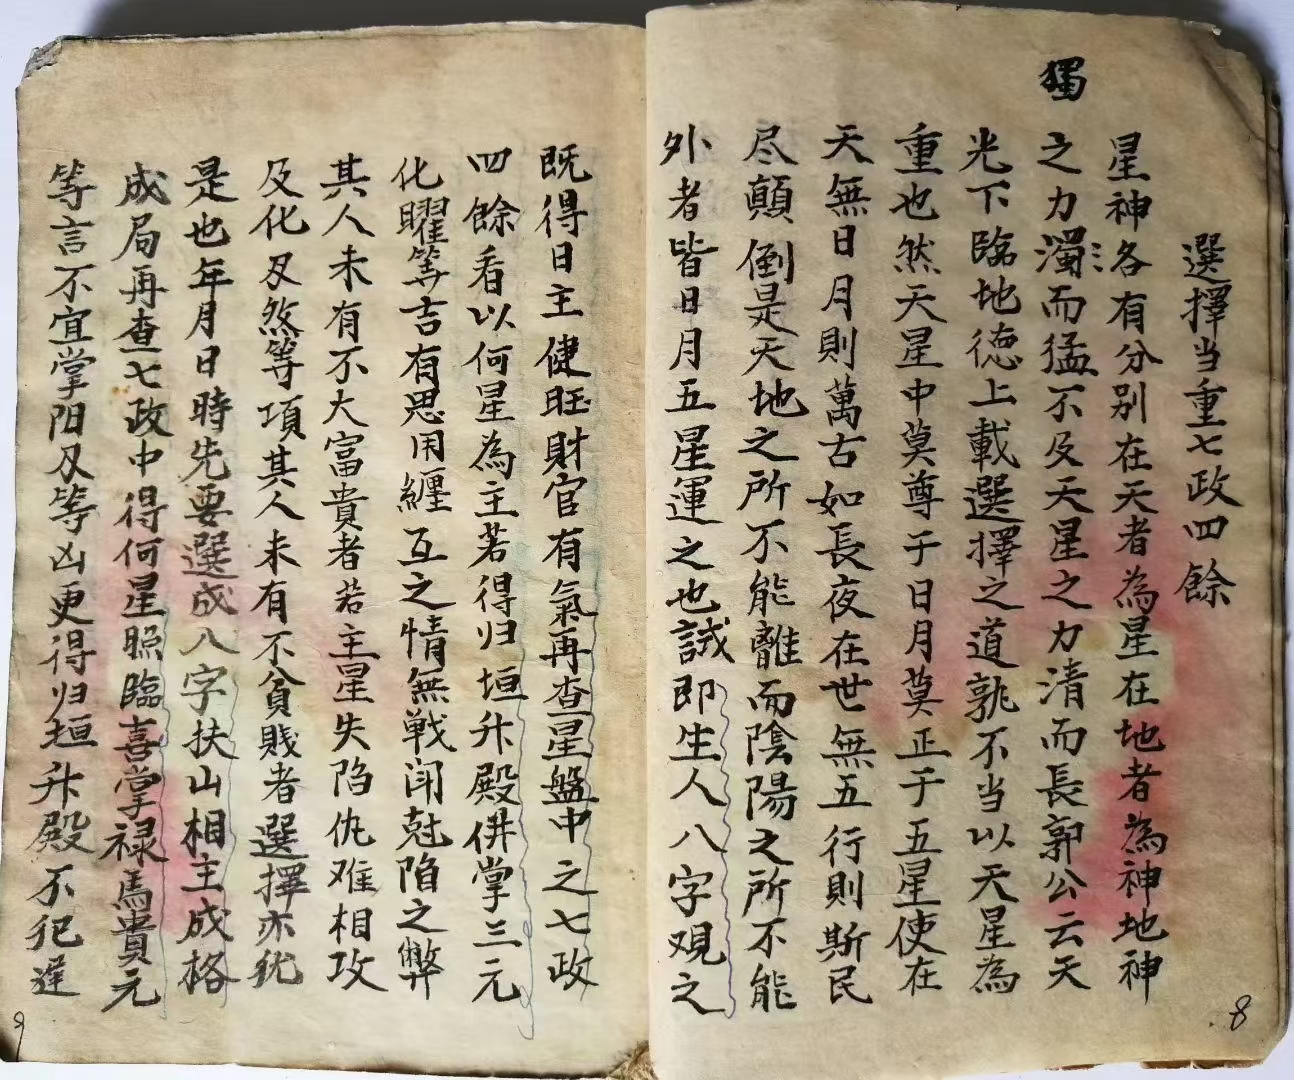 選擇当重七政四餘
星神各有分別在天者為星在地者為神地神
獨
之力濁而猛不及天星之力清而長郭公云天
光下臨地德上載選擇之道孰不当以天星為
重也然天星中莫尊于日月莫正于五星使在
天無日月則萬古如長夜在世無五行則斯民
尽顛倒是天地之所不能離而陰陽之所不能
外者皆日月五星運之也誠即生人八字观之
8
既得日主健旺財官有氣再查星盤中之七政
四餘看以何星為主若得归垣升殿併掌三元
化曜等吉有恩用纏互之情無戰闹尅陷之弊
其人未有不大富貴者若主星失陷仇难相攻
及化刃煞等項其人未有不貧贱者選擇亦犹
是也年月日時先要選成八字扶山相主成格
成局再查七政中得何星照臨喜掌禄馬貴元
等言不宜掌阳刃等凶更得归垣升殿不犯逆
9